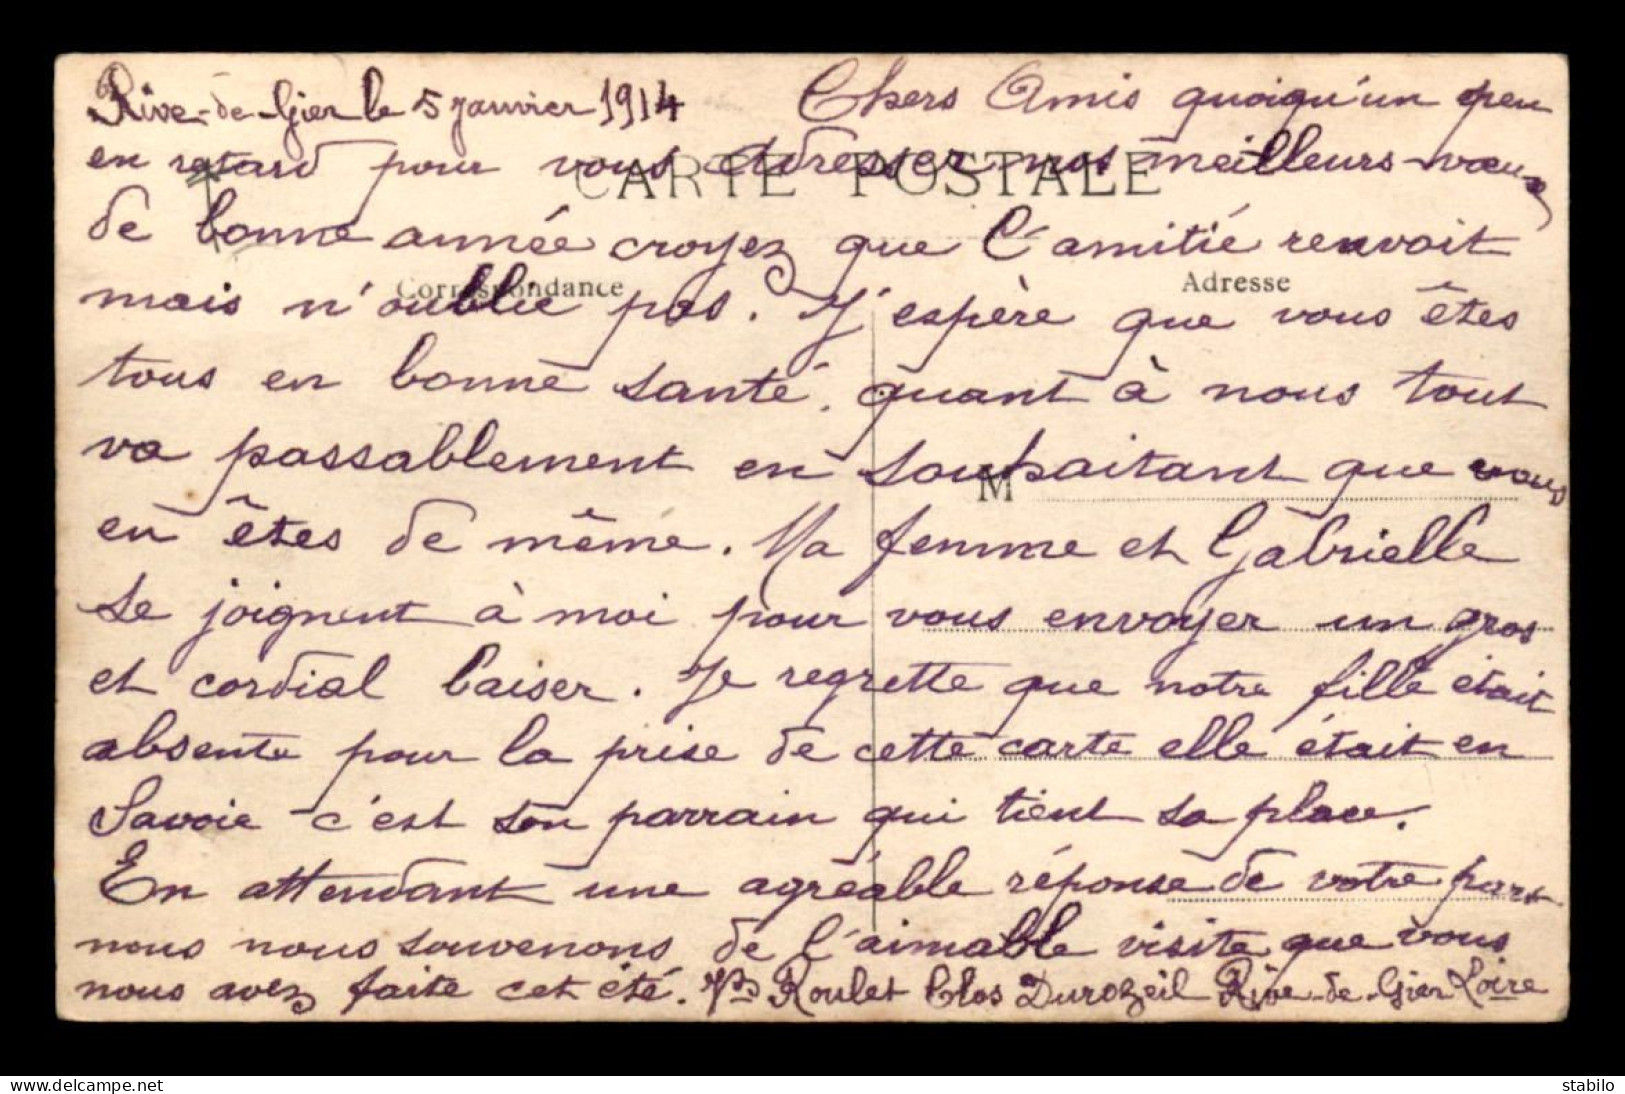 Rive-de-Gier le 5 janvier 1914 Chers Amis quoiqu'un peu
en retard pour vous adresser nos meilleurs vœux
CARTE POSTALE
de bonne année croyez que l'amitié renvoit
Correspondance
Adresse
mais n'oublie pas. J'espère que vous êtes
tous en bonne santé, quant à nous tout
va passablement en souhaitant que vous
M
en êtes de même. Ma femme et Gabrielle
se joignent à moi pour vous envoyer un gros
et cordial baiser. Je regrette que notre fille était
absente pour la prise de cette carte elle était en
Savoie c'est son parrain qui tient sa place.
En attendant une agréable réponse de votre part
nous nous souvenons de l'aimable visite que vous
nous avez faite cet été. Roulet Clos Durozeil Rive-de-Gier Loire
www.delcampe.net
stabilo